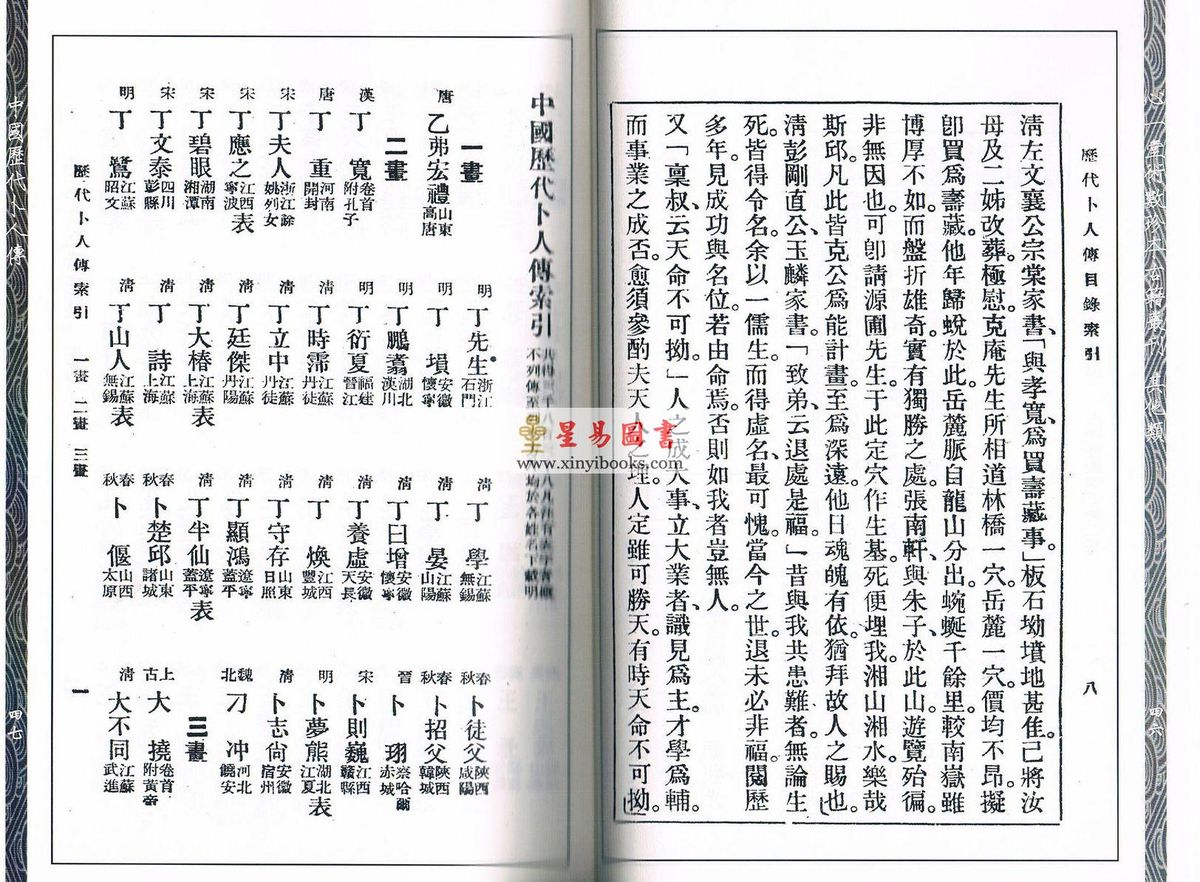 歷代卜人傳目錄索引
八
清左文襄公宗棠家書、「與孝寬、爲買壽藏事」板石坳墳地甚佳。已將汝
母及二姊改葬。極慰。克庵先生所相道林橋一穴。岳麓一穴。價均不昂。擬
卽買爲壽藏。他年歸蛻於此。岳麓脈自龍山分出。蜿蜒千餘里。較南嶽雖
博厚不如。而盤折雄奇。實有獨勝之處。張南軒、與朱子、於此山遊覽殆徧。
非無因也。可卽請源圃先生。于此定穴作生基。死便埋我。湘山湘水。樂哉
斯邱。凡此皆克公爲能計畫。至爲深遠。他日魂魄有依。猶拜故人之賜也。
清彭剛直公、玉麟家書、「致弟、云退處是福。」昔與我共患難者。無論生
死。皆得令名。余以一儒生。而得虛名、最可愧。當今之世。退未必非福。閱歷
多年。見成功與名位。若由命焉。否則如我者豈無人。
又「稟叔、云天命不可拗、」人之成大事、立大業者、識見爲主。才學爲輔。
而事業之成否。愈須參酌夫天人之理。人定雖可勝天。有時天命不可拗。
四六
中國歷代卜人傳索引
一畫
唐 乙弗宏禮 山東高唐
二畫
漢 丁寬 卷首附孔子
唐 丁重 河南開封
宋 丁夫人 浙江餘姚列女
宋 丁應之 江西寧波表
宋 丁碧眼 湖南湘潭
宋 丁文泰 四川彭縣
明 丁鷺 江蘇昭文
明 丁先生 浙江石門
明 丁塤 安徽懷寧
明 丁鵬翥 湖北漢川
明 丁衍夏 福建晉江
清 丁時霈 江蘇丹徒
清 丁立中 江蘇丹徒
清 丁廷傑 江蘇丹陽
清 丁大椿 江蘇上海表
清 丁詩 江蘇上海
清 丁山人 江蘇無錫表
清 丁學 江蘇無錫
清 丁晏 江蘇山陽
清 丁曰增 安徽懷寧
清 丁養虛 安徽天長
清 丁煥 江西豐城
清 丁守存 山東日照
清 丁顯鴻 遼寧蓋平
清 丁半仙 遼寧蓋平表
春秋 卜楚邱 山東諸城
春秋 卜偃 山西太原
春秋 卜徒父 陝西咸陽
春秋 卜招父 陝西韓城
晉 卜珝 察哈爾赤城
宋 卜則巍 江西贛縣
明 卜夢熊 湖北江夏表
清 卜志尙 安徽宿州
北魏 刁冲 河北饒安
三畫
上古 大撓 卷首附黃帝
清 大不同 江蘇武進
歷代卜人傳索引 一畫 二畫 三畫
一
中國歷代卜人傳
四七
星易圖書
www.xinyibooks.com